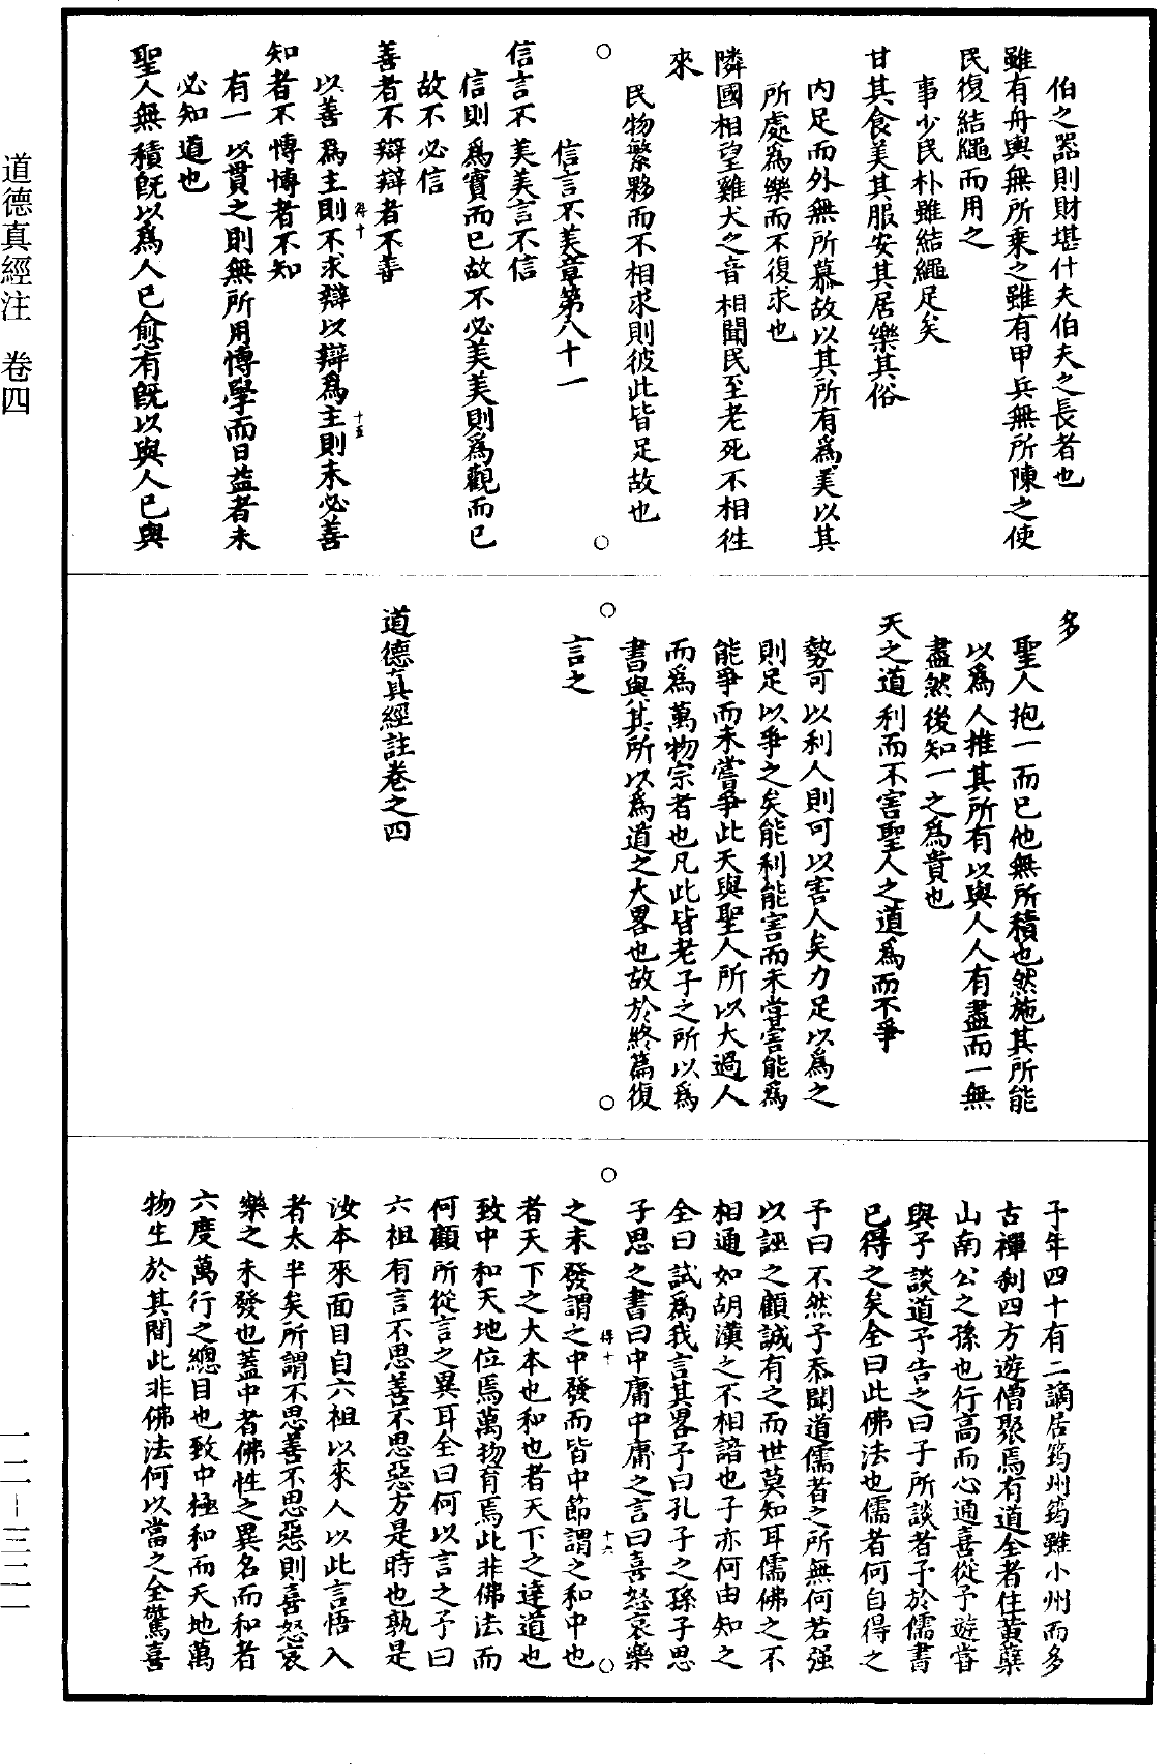 道德真經注　卷四
一二—三二一
伯之器則財堪什夫伯夫之長者也
雖有舟輿無所乘之雖有甲兵無所陳之使
民復結繩而用之
事少民朴雖結繩足矣
甘其食美其服安其居樂其俗
內足而外無所慕故以其所有為美以其
所處為樂而不復求也
隣國相望雞犬之音相聞民至老死不相徃
來
民物繁夥而不相求則彼此皆足故也
信言不美章第八十一
信言不美美言不信
信則為實而已故不必美美則為觀而已
故不必信
善者不辯辯者不善
以善為主則不求辯以辯為主則未必善
得十
十五
知者不博博者不知
有一以貫之則無所用博學而日益者未
必知道也
聖人無積旣以為人已愈有旣以與人已與
多
聖人抱一而已他無所積也然施其所能
以為人推其所有以與人人有盡而一無
盡然後知一之為貴也
天之道利而不害聖人之道為而不爭
勢可以利人則可以害人矣力足以為之
則足以爭之矣能利能害而未嘗害能為
能爭而未嘗爭此天與聖人所以大過人
而為萬物宗者也凡此皆老子之所以為
書與其所以為道之大畧也故於終篇復
言之
道德真經註卷之四
予年四十有二謫居筠州筠雖小州而多
古禪剎四方遊僧聚焉有道全者住黃蘗
山南公之孫也行高而心通喜從予遊嘗
與予談道予告之曰子所談者予於儒書
已得之矣全曰此佛法也儒者何自得之
予曰不然予忝聞道儒者之所無何若强
以誣之顧誠有之而世莫知耳儒佛之不
相通如胡漢之不相諳也子亦何由知之
全曰試為我言其畧予曰孔子之孫子思
子思之書曰中庸中庸之言曰喜怒哀樂
之未發謂之中發而皆中節謂之和中也
得十
十六
者天下之大本也和也者天下之達道也
致中和天地位焉萬物育焉此非佛法而
何顧所從言之異耳全曰何以言之予曰
六祖有言不思善不思惡方是時也孰是
汝本來面目自六祖以來人以此言悟入
者太半矣所謂不思善不思惡則喜怒哀
樂之未發也蓋中者佛性之異名而和者
六度萬行之總目也致中極和而天地萬
物生於其間此非佛法何以當之全驚喜